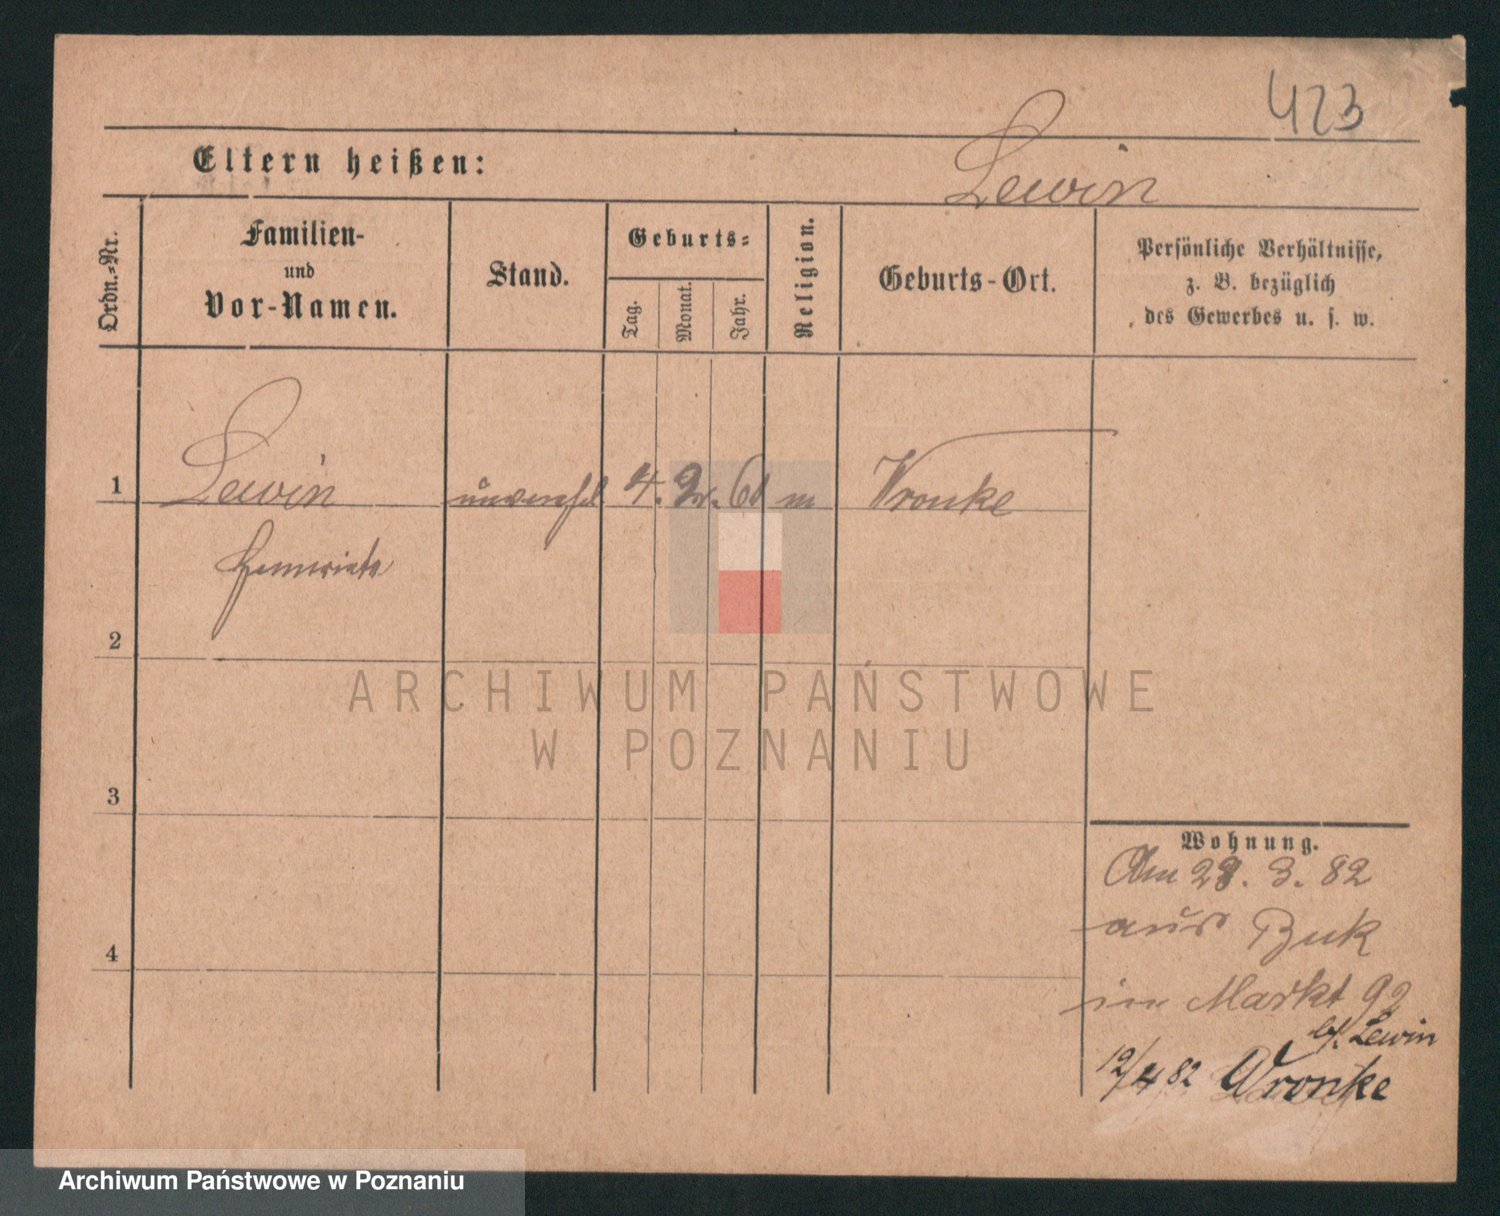 423
Lewin
Eltern heißen:
Ordn.-Nr.
Familien-
und
Vor-Namen.
Stand.
Geburts-
Tag.
Monat.
Jahr.
Religion.
Geburts-Ort.
Persönliche Verhältnisse,
z. B. bezüglich
des Gewerbes u. s. w.
1
Lewin
4. 61 m Wronke
Hennriete
2
ARCHIWUM PAŃSTWOWE
W POZNANIU
3
Wohnung.
Am 28. 3. 82
aus Buk
im Markt 92
bf. Lewin
12/4 82 Wronke
4
Archiwum Państwowe w Poznaniu